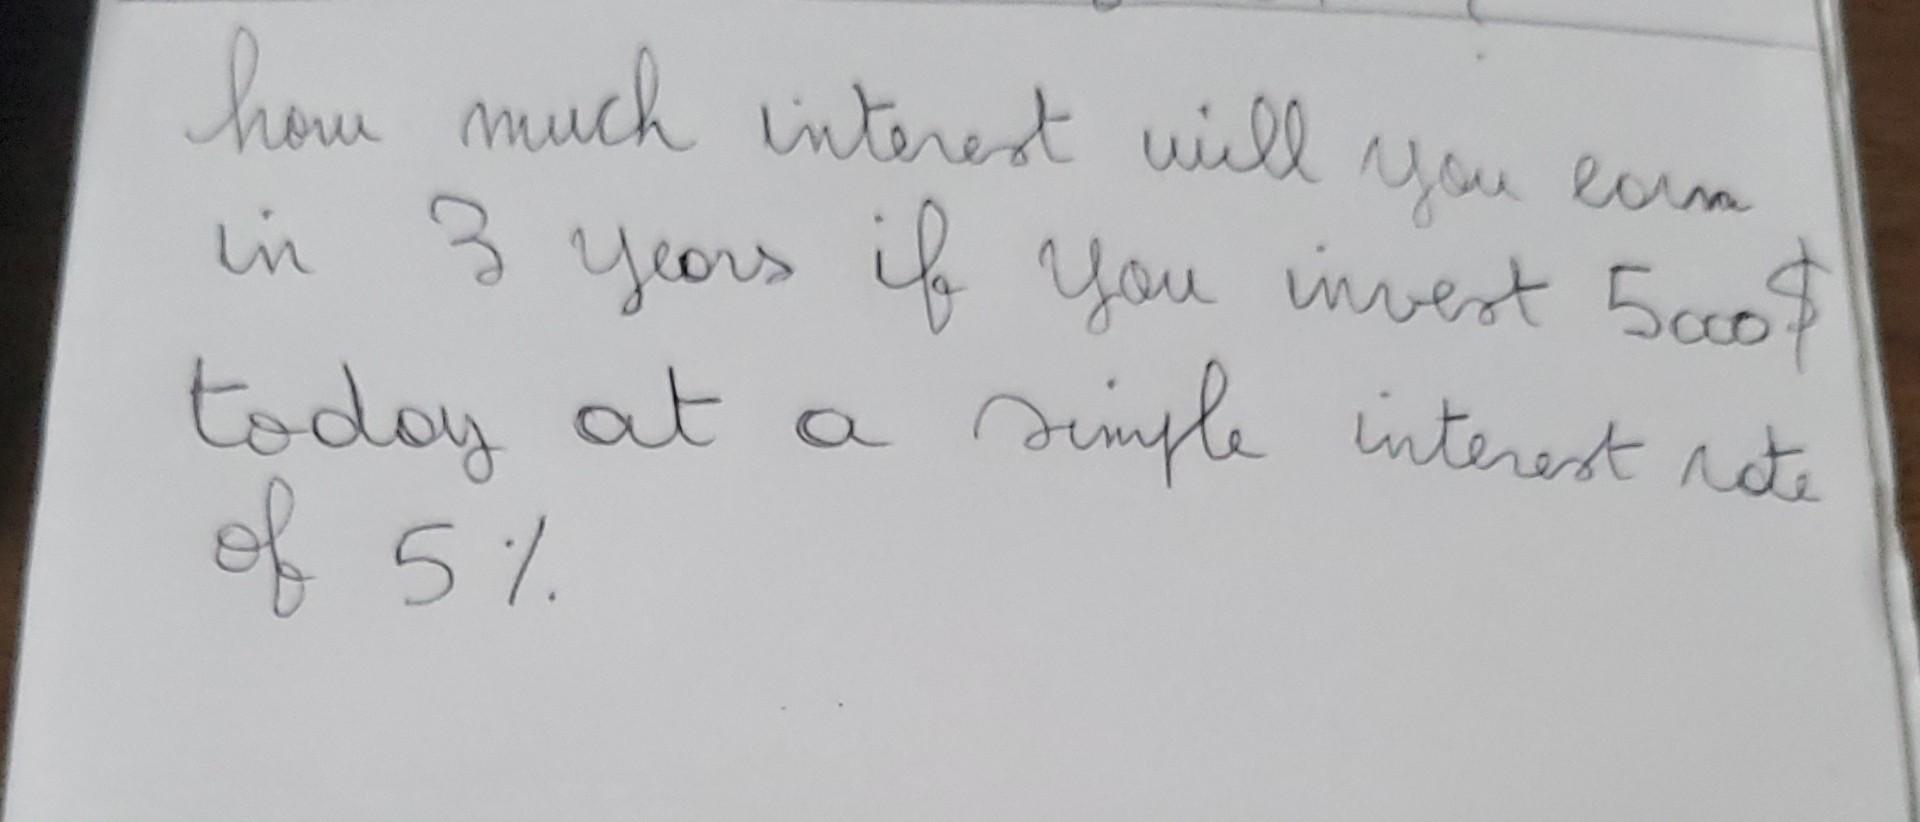 how much interest will you earn
in 3 years if you invest 5000$
today at a simple interest rate
of 5%